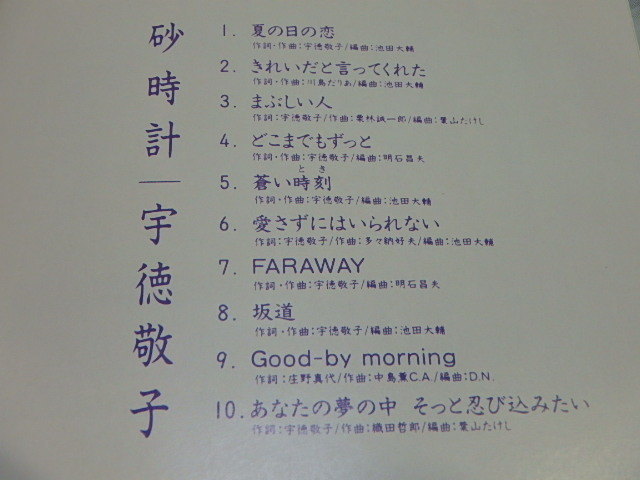 砂時計｜宇徳敬子
1. 夏の日の恋
作詞・作曲:宇徳敬子/編曲:池田大輔
2. きれいだと言ってくれた
作詞・作曲:川島だりあ/編曲:池田大輔
3. まぶしい人
作詞:宇徳敬子/作曲:栗林誠一郎/編曲:葉山たけし
4. どこまでもずっと
作詞・作曲:宇徳敬子/編曲:明石昌夫
とき
5. 蒼い時刻
作詞・作曲:宇徳敬子/編曲:池田大輔
6. 愛さずにはいられない
作詞:宇徳敬子/作曲:多々納好夫/編曲:池田大輔
7. FARAWAY
作詞・作曲:宇徳敬子/編曲:明石昌夫
8. 坂道
作詞・作曲:宇徳敬子/編曲:池田大輔
9. Good-by morning
作詞:庄野真代/作曲:中島薫C.A./編曲:D.N.
10. あなたの夢の中 そっと忍び込みたい
作詞:宇徳敬子/作曲:織田哲郎/編曲:葉山たけし